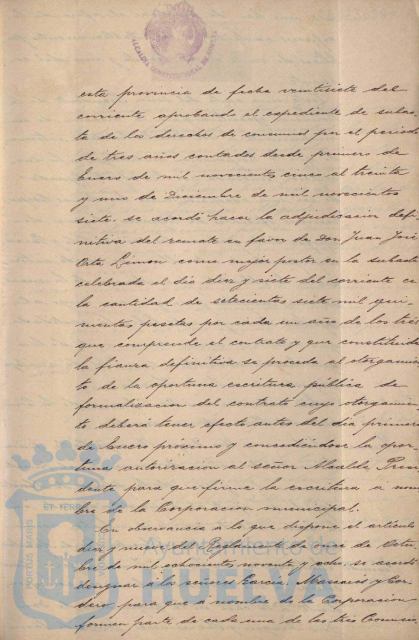 ALCALDIA CONSTITUCIONAL DE HUELVA
esta provincia de fecha veintisiete del
corriente aprobando el expediente de subas-
ta de los derechos de consumos por el periodo
de tres años contados desde primero de
Enero de mil novecientos cinco al treinta
y uno de Diciembre de mil novecientos
siete, se acordó hacer la adjudicación defi-
nitiva del remate en favor de Don Juan José
Orta Limon como mejor postor en la subasta
celebrada el día diez y siete del corriente en
la cantidad de setecientas siete mil qui-
nientas pesetas por cada un año de los tres
que comprende el contrato y que constituida
la fianza definitiva se proceda al otorgamien-
to de la oportuna escritura pública de
formalizacion del contrato cuyo otorgamien-
to deberá tener efecto antes del día primero
de Enero próximo y concediéndose la opor-
tuna autorizacion al señor Alcalde Presi-
dente para que firme la escritura á nom-
bre de la Corporacion municipal.
En observancia á lo que dispone el artículo
diez y nueve del Reglamento de once de Octu-
bre de mil ochocientos noventa y ocho, se acordó
designar á los señores García, y Cor-
dero, para que á nombre de la Corporacion
formen parte de cada una de las tres Comisio
PORTUS MARIS ET TERRAE CUSTODIA
Ayuntamiento de
HUELVA